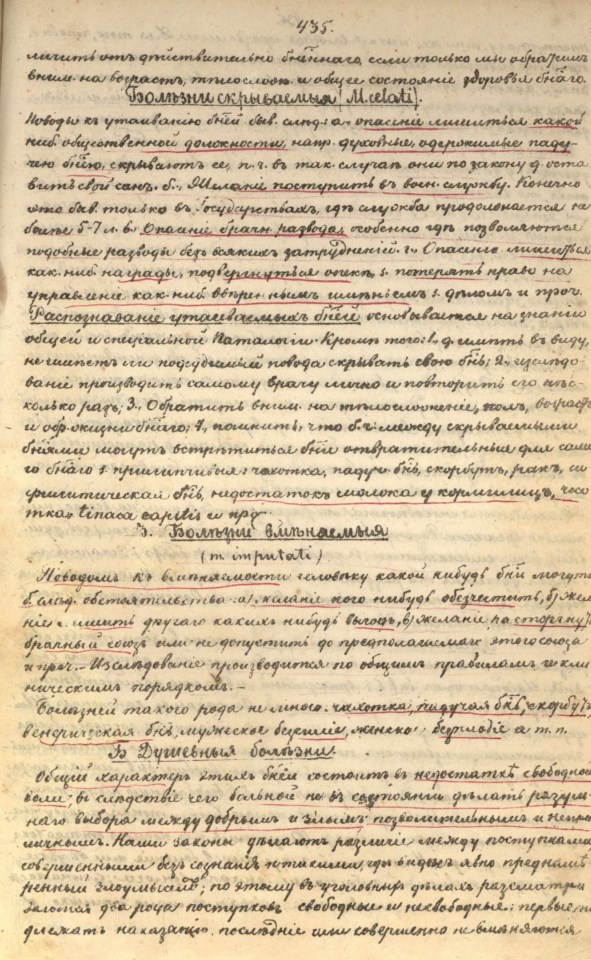 435.
личить отъ дѣйствительно бнѣннаго, если только мы обратимъ
вним. на возрастъ, тѣлослож. и общее состояніе здоровья бнаго.
Болѣзни скрываемыя (M. celati).
Поводы къ утаиванію бнѣй быв. слѣд: а, опасеніе лишиться какой
ниб. общественной должности, напр. духовные, одержимые паду-
чею бнѣю, скрываютъ ее, п. ч. въ так. случаѣ они по закону д. оста
вить свой санъ. б., Желаніе поступить въ воен. службу. Конечно
это быв. только въ Государствахъ, гдѣ служба продолжается не
болѣе 5-7 л. в., Опасеніе брачн. развода, особенно гдѣ позволяются
подобные разводы безъ всякихъ затрудненій. г., Опасеніе лишиться
как. ниб. награды, подвергнуться опекѣ, s. потерять право на
управленіе как. ниб. ввѣреннымъ имѣніемъ s. дѣломъ и проч.
Распознаваніе утаеваемыхъ бнѣй основывается на знаніи
общей и спеціальной Патологіи. Кромѣ того: 1., д. имѣть въ виду,
не имѣетъ ли подсудимый повода скрывать свою бнь; 2., изслѣдо-
ваніе производить самому врачу лично и повторить его нѣс-
колько разъ; 3., Обратить вним. на тѣлосложеніе, полъ, возрастъ
и обр. жизни бнаго; 4, помнить, что б. ч. между скрываемыми
бнями могутъ встрѣтиться бни отвратительныя для сама
го бнаго s. прилипчивыя: чахотка, падуч. бнь, скорбутъ, ракъ, си
филитическая бнь, недостатокъ молока у кормилицъ, чесо
тка, tinaea capitis и пр.
3. Болѣзни вмѣняемыя
(m imputati)
Поводомъ къ вмѣняемости человѣку какой нибудь бни могутъ
б. слѣд. обстоятельства: а) желаніе кого нибудь обезчестить, б) жела
ніе s. лишить другаго какихъ нибудь выгодъ, в) желаніе расторгнуть
брачный союзъ или не допустить до предполагаемаго этого союза
и проч. — Изслѣдованіе производится по общимъ правиламъ и кли
ническимъ порядкомъ. —
Болѣзней такого рода не много: чахотка, падучая бнь, скорбутъ,
венерическая бнь, мужеское безсиліе, женское безплодіе и т. п.
Б Душевныя болѣзни.
Общій характеръ этихъ бнѣй состоитъ въ недостаткѣ свободной
воли, въ слѣдствіе чего больной не въ состояніи дѣлать разум-
наго выбора между добрымъ и злымъ, позволительнымъ и непри
личнымъ. Наши законы дѣлаютъ различіе между поступками
совершенными безъ сознанія и такими, гдѣ виденъ явно преднамѣ
ренный злоумыселъ; поэтому въ уголовныхъ дѣлахъ разсматри
ваются два рода поступковъ свободные и несвободные: первые по
длежатъ наказанію, послѣдніе или совершенно не вмѣняются